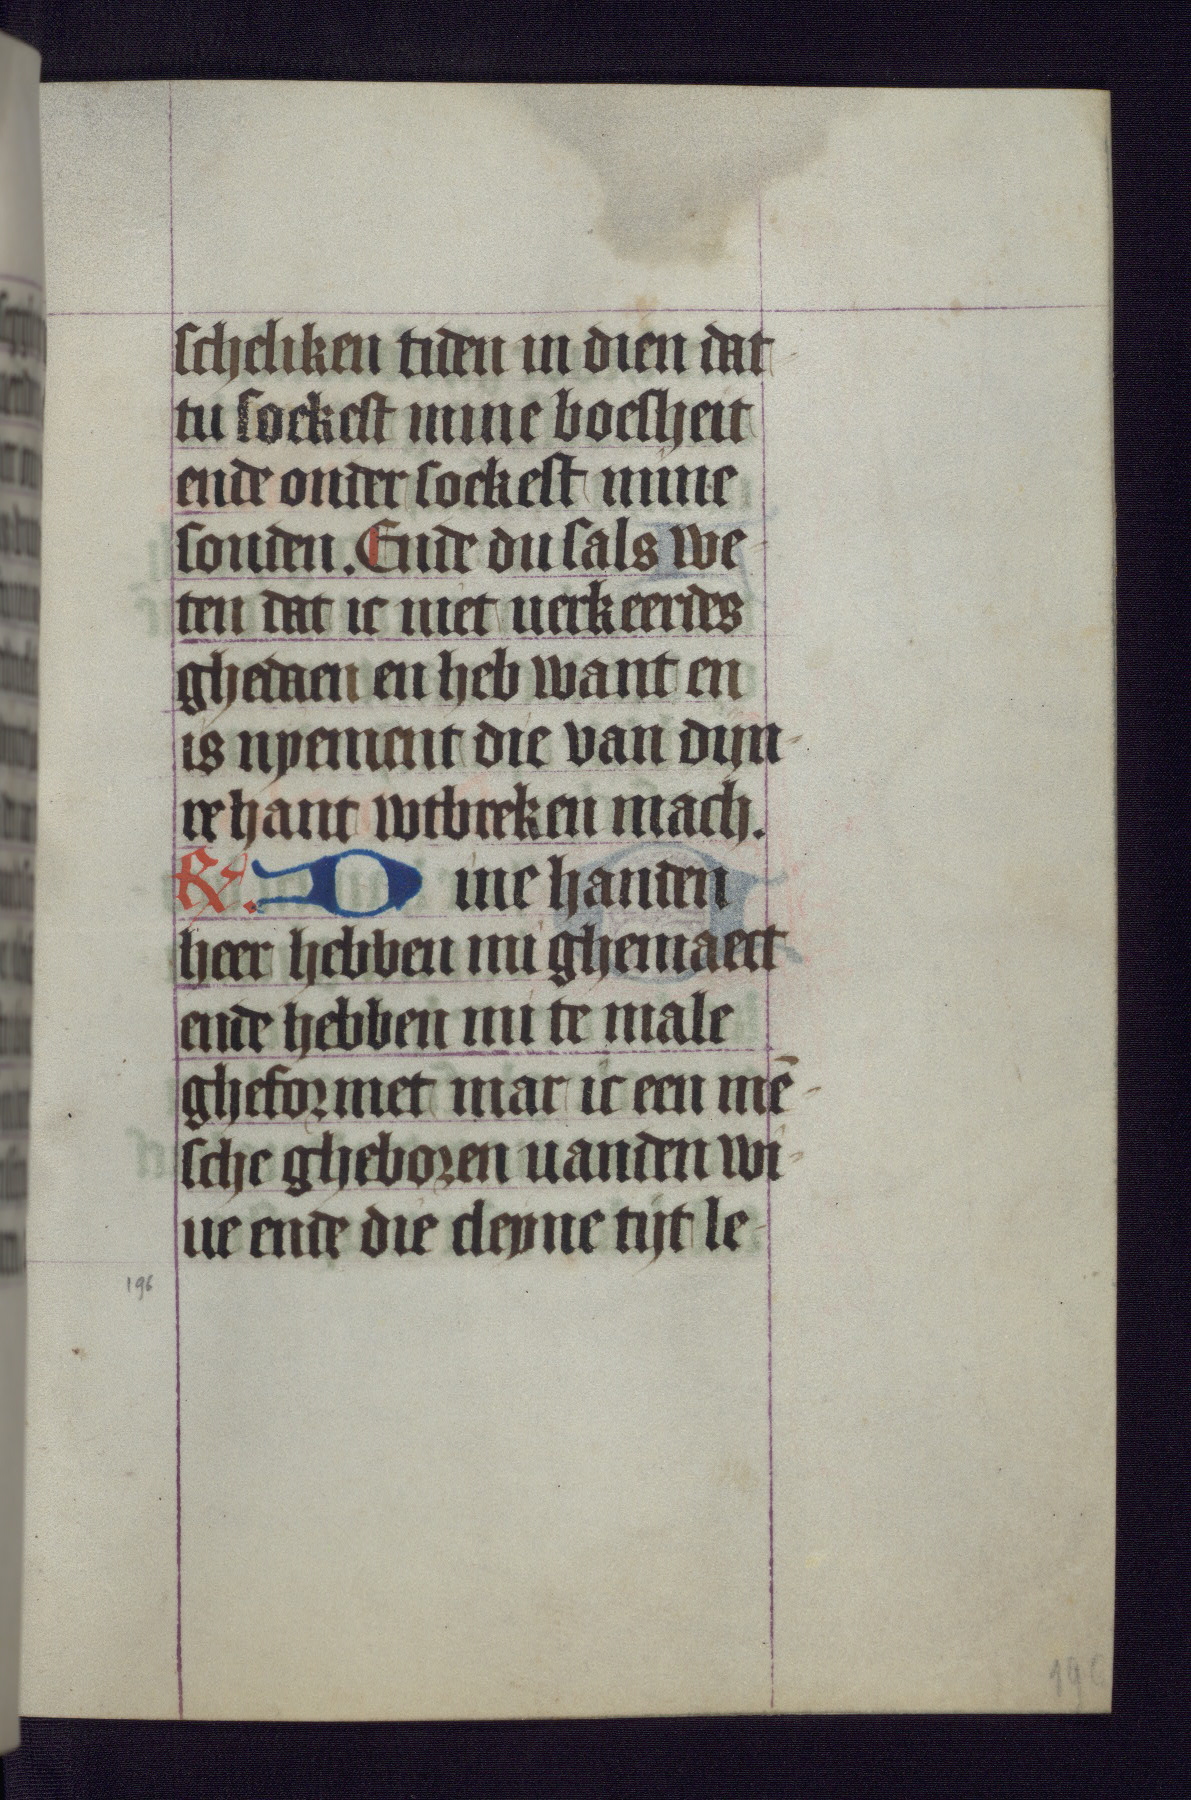 scheliken tiden in dien dat
tu soekest mine boesheit
ende onder soekest mine
sonden. Ende du sals we
ten dat ic niet uerkeerdes
ghedaen en heb want en
is nyement die van dijn
re hant wtbreken mach.
℟. Dine handen
heer hebben mi ghemaect
ende hebben mi te male
gheformet mar ic een mē
sche gheboren uanden wi
ue ende die cleyne tijt le
196
196